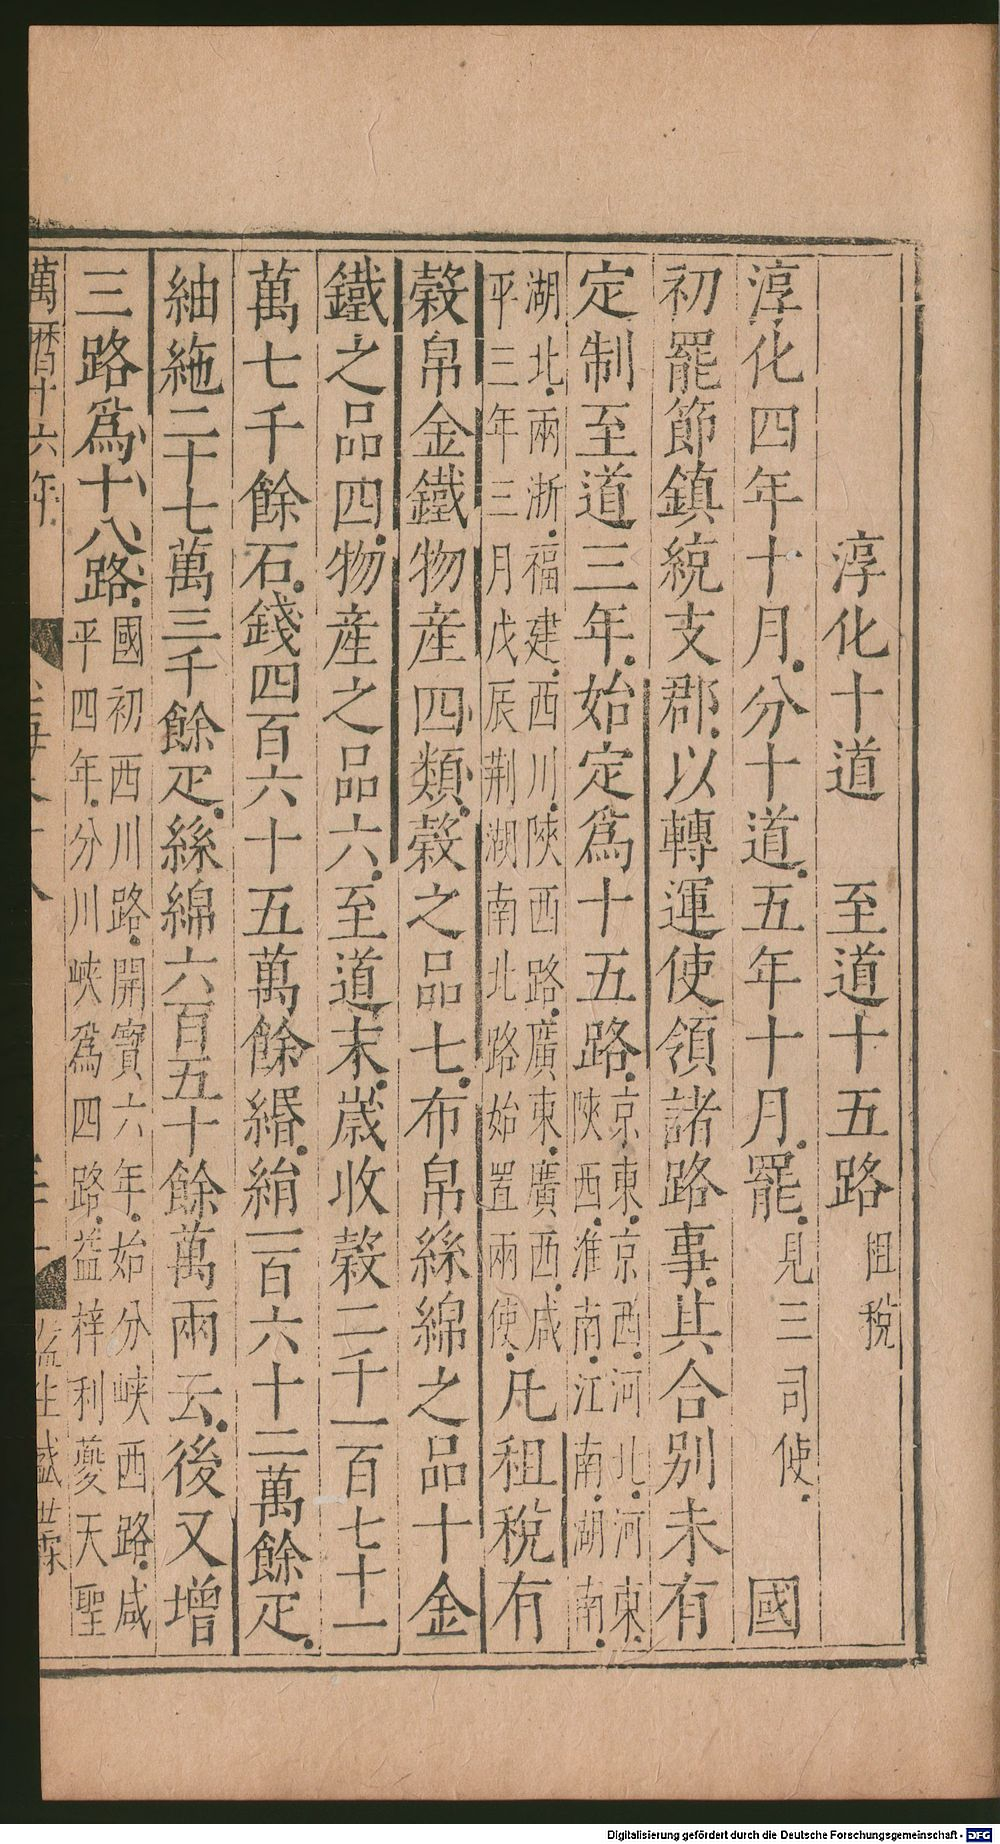 淳化十道　至道十五路租稅
淳化四年十月分十道五年十月罷見三司使　國
初罷節鎮統支郡以轉運使領諸路事其合別未有
定制至道三年始定爲十五路京東京西河北河東陝西淮南江南湖南
湖北兩浙福建西川陝西路廣東廣西咸平三年三月戊辰荆湖南北路始置兩使凡租稅有
穀帛金鐵物産四類穀之品七布帛絲綿之品十金
鐵之品四物産之品六至道末歲收穀二千一百七十一
萬七千餘石錢四百六十五萬餘緡絹一百六十二萬餘疋
紬絁二十七萬三千餘疋絲綿六百五十餘萬兩云後又增
三路爲十八路國初西川路開寶六年始分峽西路咸平四年分川峽爲四路益梓利夔天聖
萬曆十六年
監生盛世霖
Digitalisierung gefördert durch die Deutsche Forschungsgemeinschaft - DFG